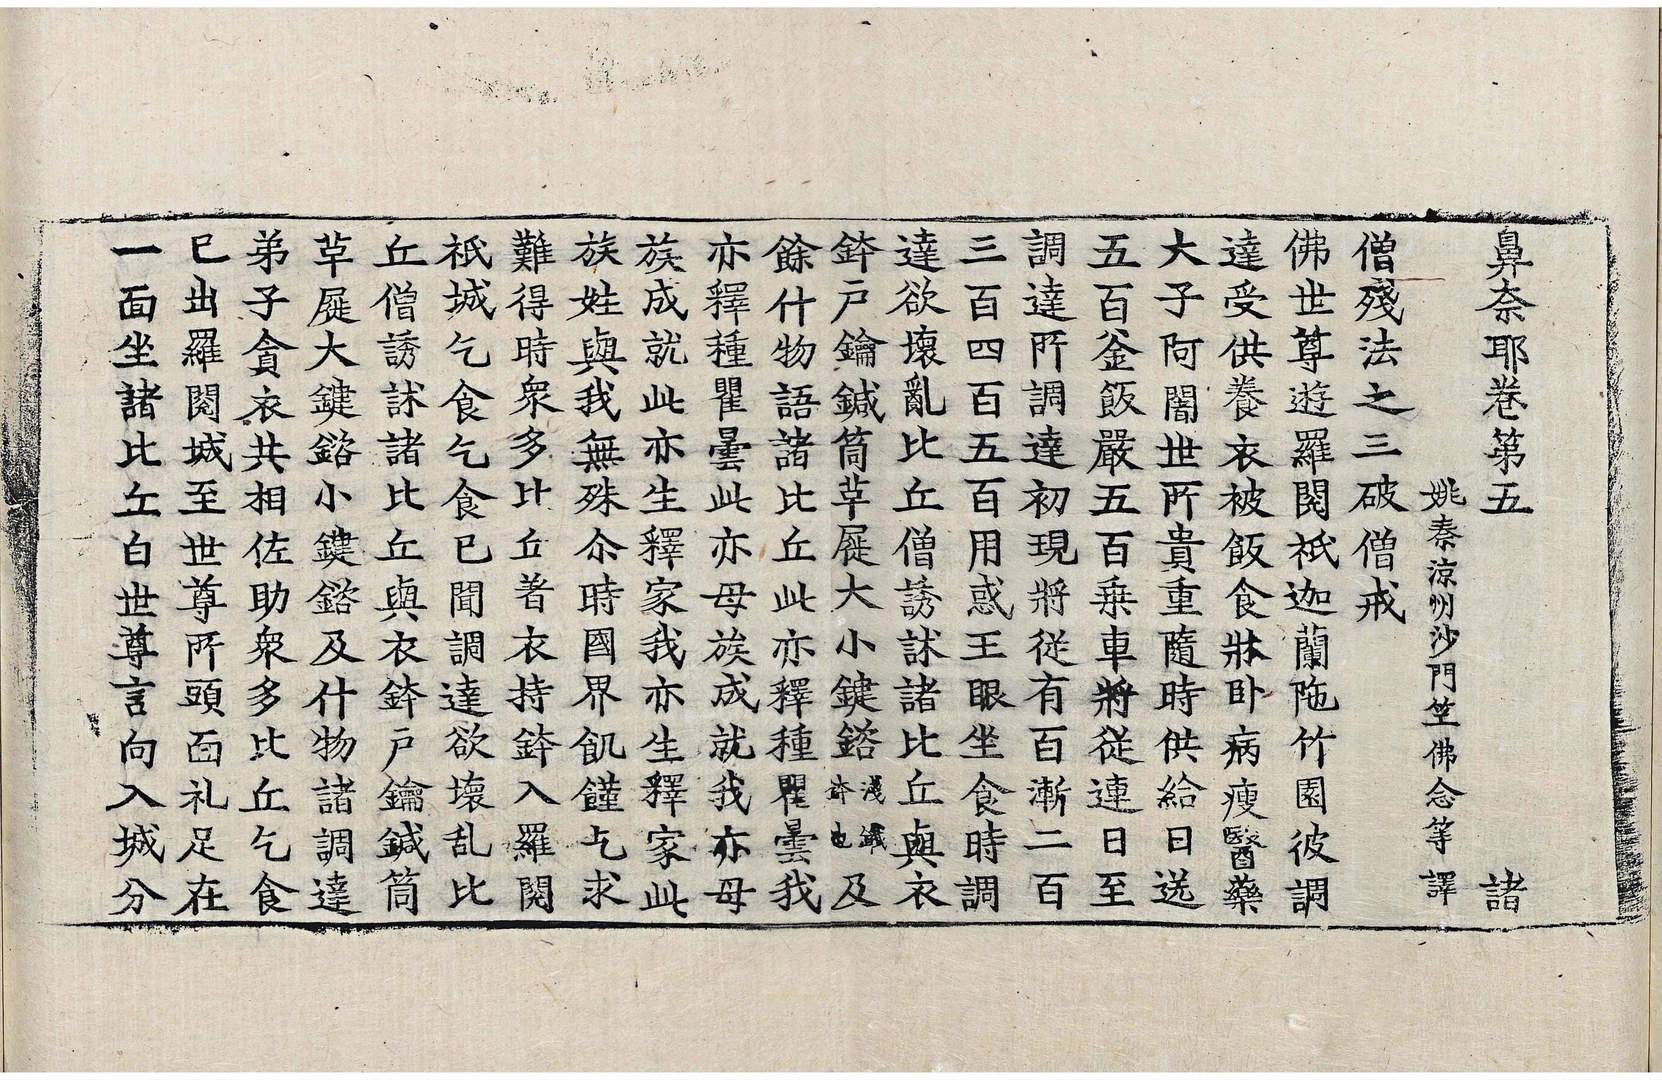 鼻奈耶卷第五 諸
姚秦涼州沙門竺佛念等譯
僧殘法之三破僧戒
佛世尊遊羅閱祇迦蘭陁竹園彼調
達受供養衣被飯食牀卧病瘦醫藥
大子阿闍世所貴重隨時供給日送
五百釜飯嚴五百乗車將從連日至
調達所調達初現將從有百漸二百
三百四百五百用惑王眼坐食時調
達欲壞亂比丘僧誘訹諸比丘與衣
鉢戸鑰鍼筒草屣大小鍵鎔淺鐵鉢也及
餘什物語諸比丘此亦釋種瞿曇我
亦釋種瞿曇此亦母族成就我亦母
族成就此亦生釋家我亦生釋家此
族姓與我無殊尒時國界飢饉乞求
難得時衆多比丘著衣持鉢入羅閱
祇城乞食乞食已聞調達欲壞乱比
丘僧誘訹諸比丘與衣鉢戸鑰鍼筒
草屣大鍵鎔小鍵鎔及什物諸調達
弟子貪衣共相佐助衆多比丘乞食
已出羅閱城至世尊所頭面礼足在
一面坐諸比丘白世尊言向入城分